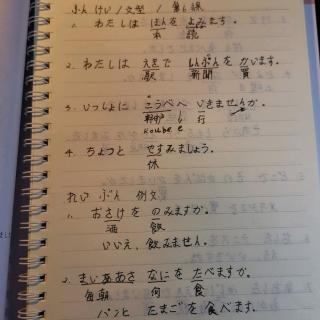 ぶんけい/文型 / 第6課
1. わたしは ほんを よみます。
本 読
2. わたしは えきで しんぶんを かいます。
駅 新聞 買
3. いっしょに こうべへ いきませんか。
神戸 行
Koube e
4. ちょっと やすみましょう。
休
れい ぶん 例文
1. おさけを のみますか。
酒 飲
いいえ、飲みません。
2. まいあさ なにを たべますか。
毎朝 何 食
パンと たまごを 食べます。